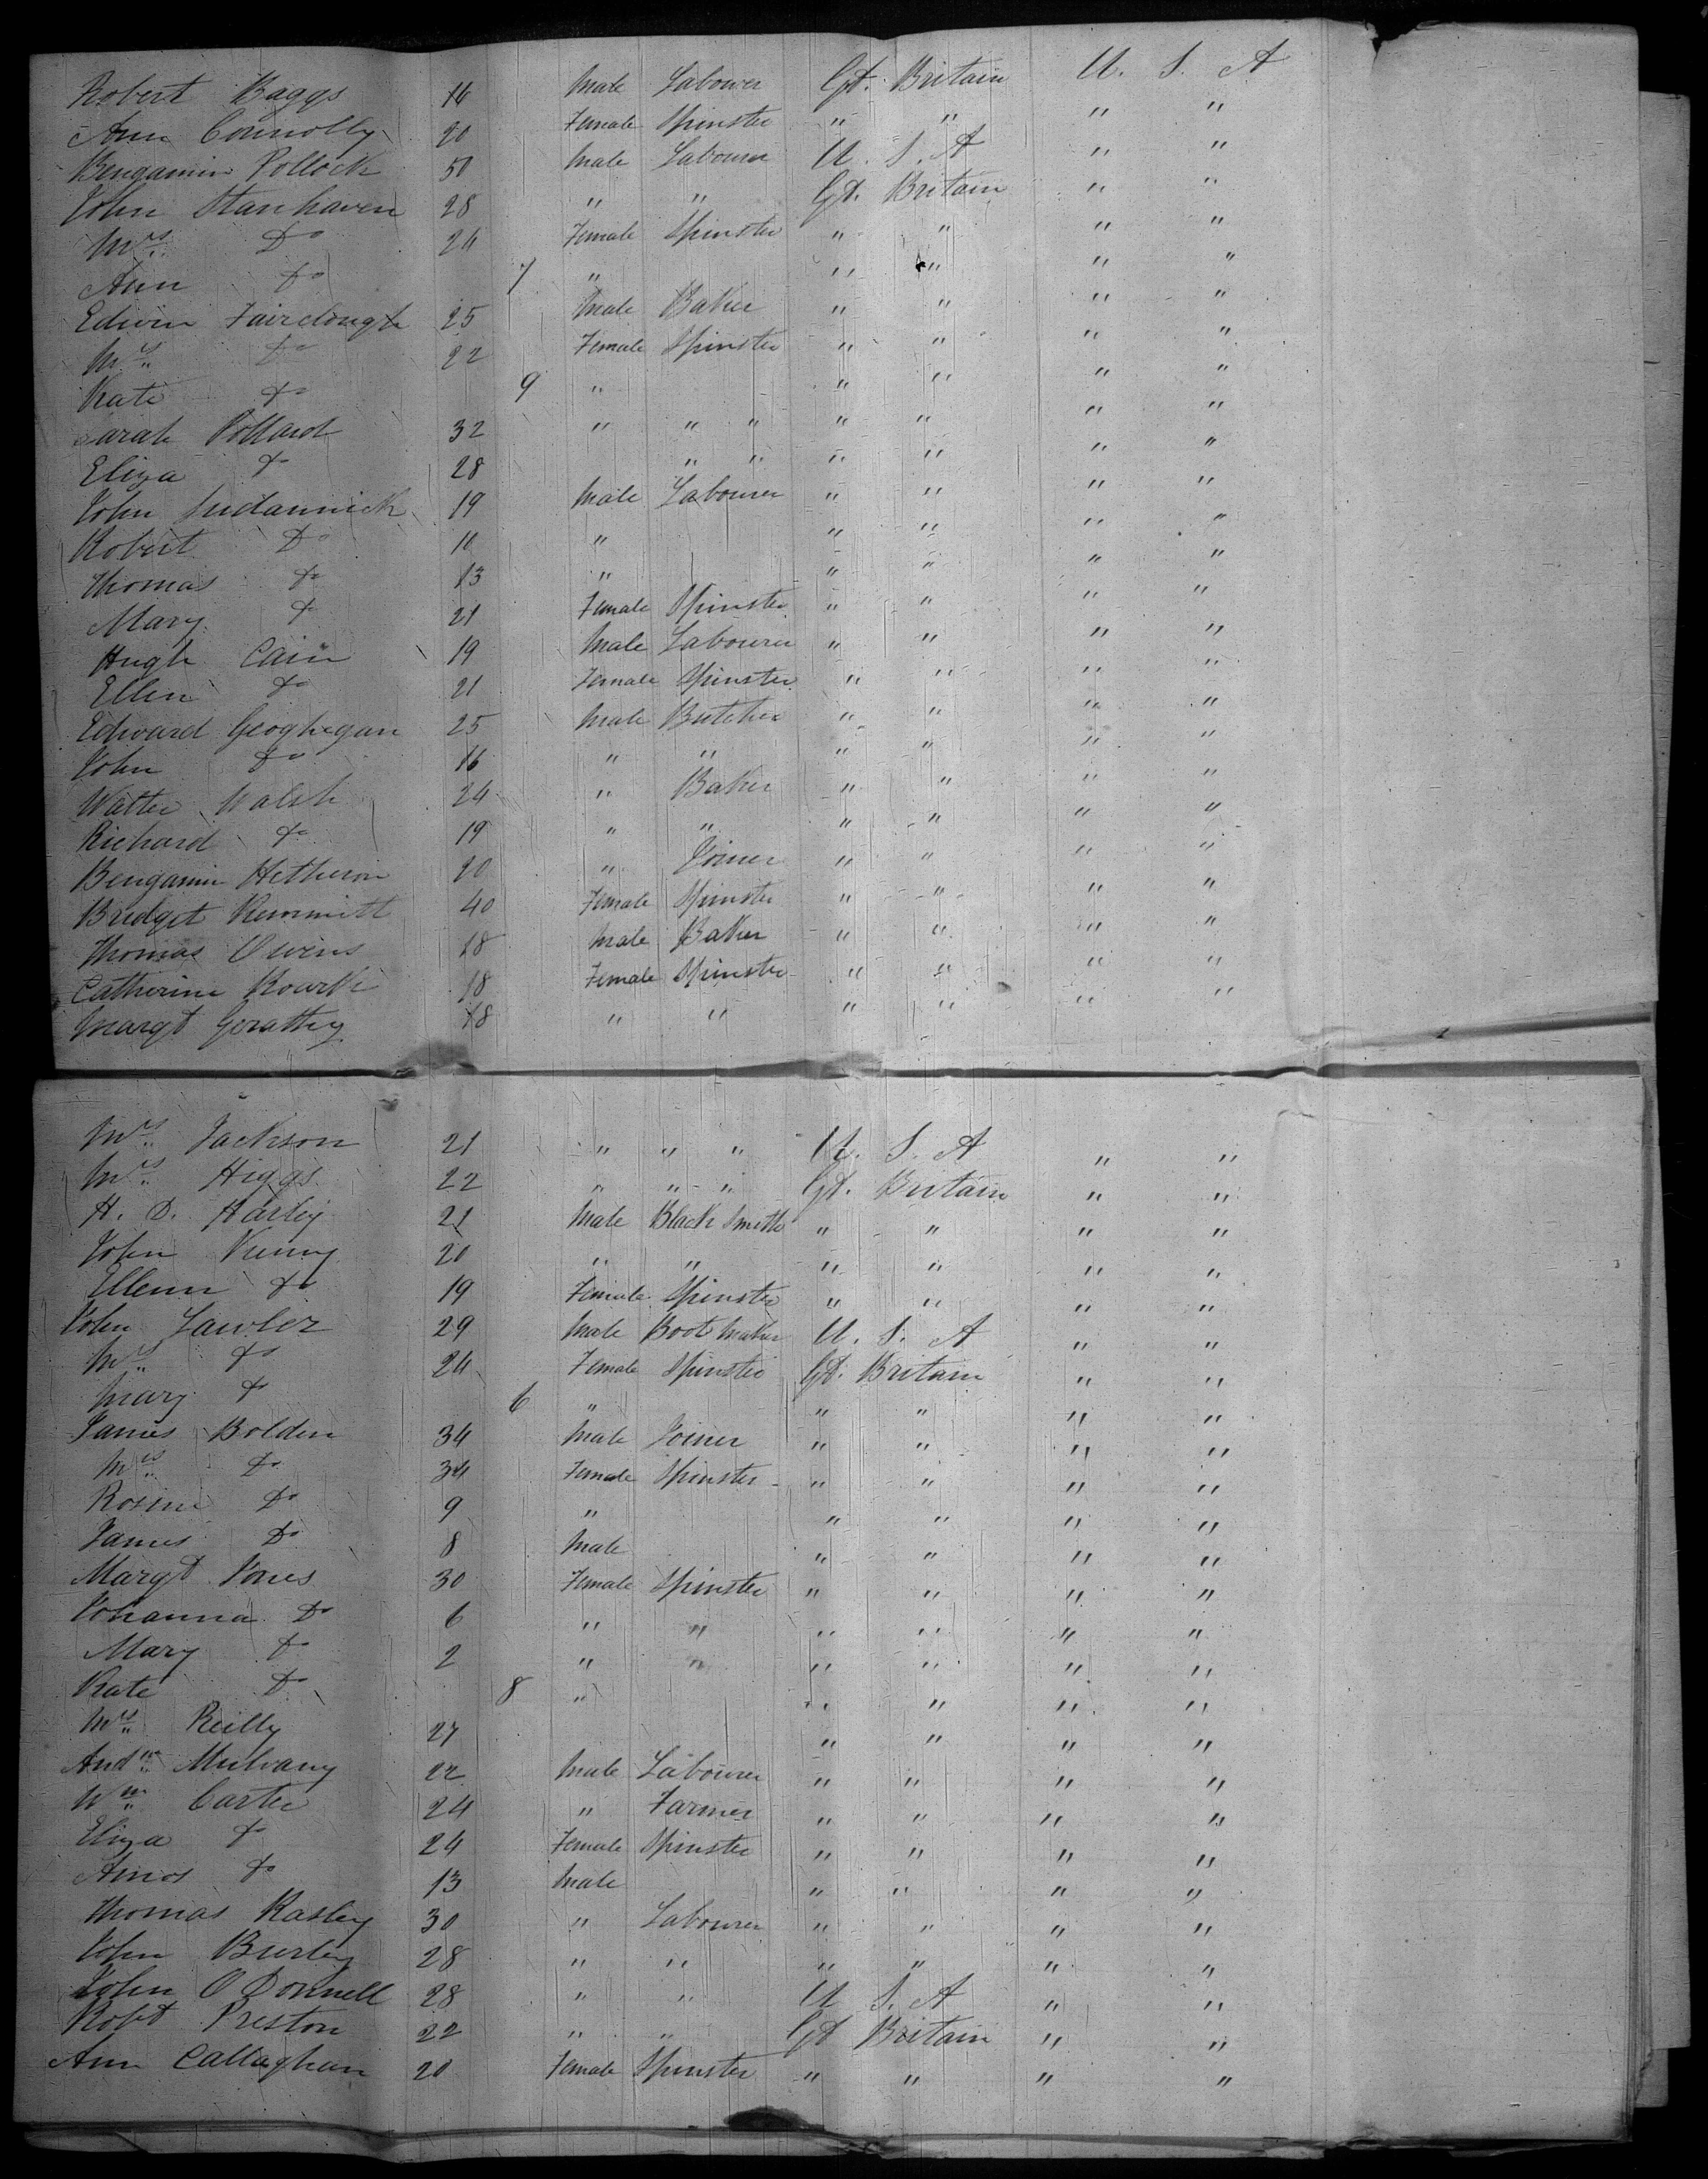 Robert Baggs 16 Male Labourer Gt. Britain U. S. A
Ann Connolly 20 Female Spinster " " " "
Bengamin Pollock 50 Male Labourer U. S. A " "
John Stanhaven 28 " " Gt. Britain " "
Mrs. Do 24 Female Spinster " " " "
Ann Do 7 " " " " "
Edwin Fairclough 25 Male Baker " " " "
Mrs. Do 22 Female Spinster " " " "
Kate Do 9 " " " " "
Sarah Pollard 32 " " " " " " "
Eliza Do 28 " " " " " "
John 19 Male Labourer " " " "
Robert Do 10 " " " " "
Thomas Do 13 " " " " "
Mary Do 21 Female Spinster " " " "
Hugh Cain 19 Male Labourer " " " "
Ellen Do 21 Female Spinster " " " "
Edward Geoghegan 25 Male Butcher " " " "
John Do 16 " " " " " "
Walter Walsh 24 " Baker " " " "
Richard Do 19 " " " " " "
Bengamin Hetheron 20 " Joiner " " " "
Bridget Kemmitt 40 Female Spinster " " " "
Thomas Owens 18 Male Baker " " " "
Catherine Rourke 18 Female Spinster " " " "
Margt Geratty 18 " " " " " "
Mrs. Jackson 21 " " " U. S. A " "
Mrs. Higgs 22 " " " Gt. Britain " "
H. D. Harley 21 Male Black Smith " " " "
John Kenny 20 " " " " " "
Ellenn Do 19 Female Spinster " " " "
John Lawler 29 Male Boot Maker U. S. A " "
Mrs. Do 24 Female Spinster Gt. Britain " "
Mary Do 6 " " " " "
James Bolden 34 Male Joiner " " " "
Mrs. Do 34 Female Spinster " " " "
Rosine Do 9 " " " " "
James Do 8 Male " " " "
Margt Jones 30 Female Spinster " " " "
Johanna Do 6 " " " " " "
Mary Do 2 " " " " " "
Kate Do 8 " " " " "
Mrs. Reilly 27 " " " "
Andw. Mulvany 22 Male Labourer " " " "
Wm. Carter 24 " Farmer " " " "
Eliza Do 24 Female Spinster " " " "
Amos Do 13 Male " " " "
Thomas Rasley 30 " Labourer " " " "
John Burley 28 " " " " " "
John O Donnell 28 " " U S. A " "
Robt Preston 22 " " Gt Britain " "
Ann Callaghan 20 Female Spinster " " " "